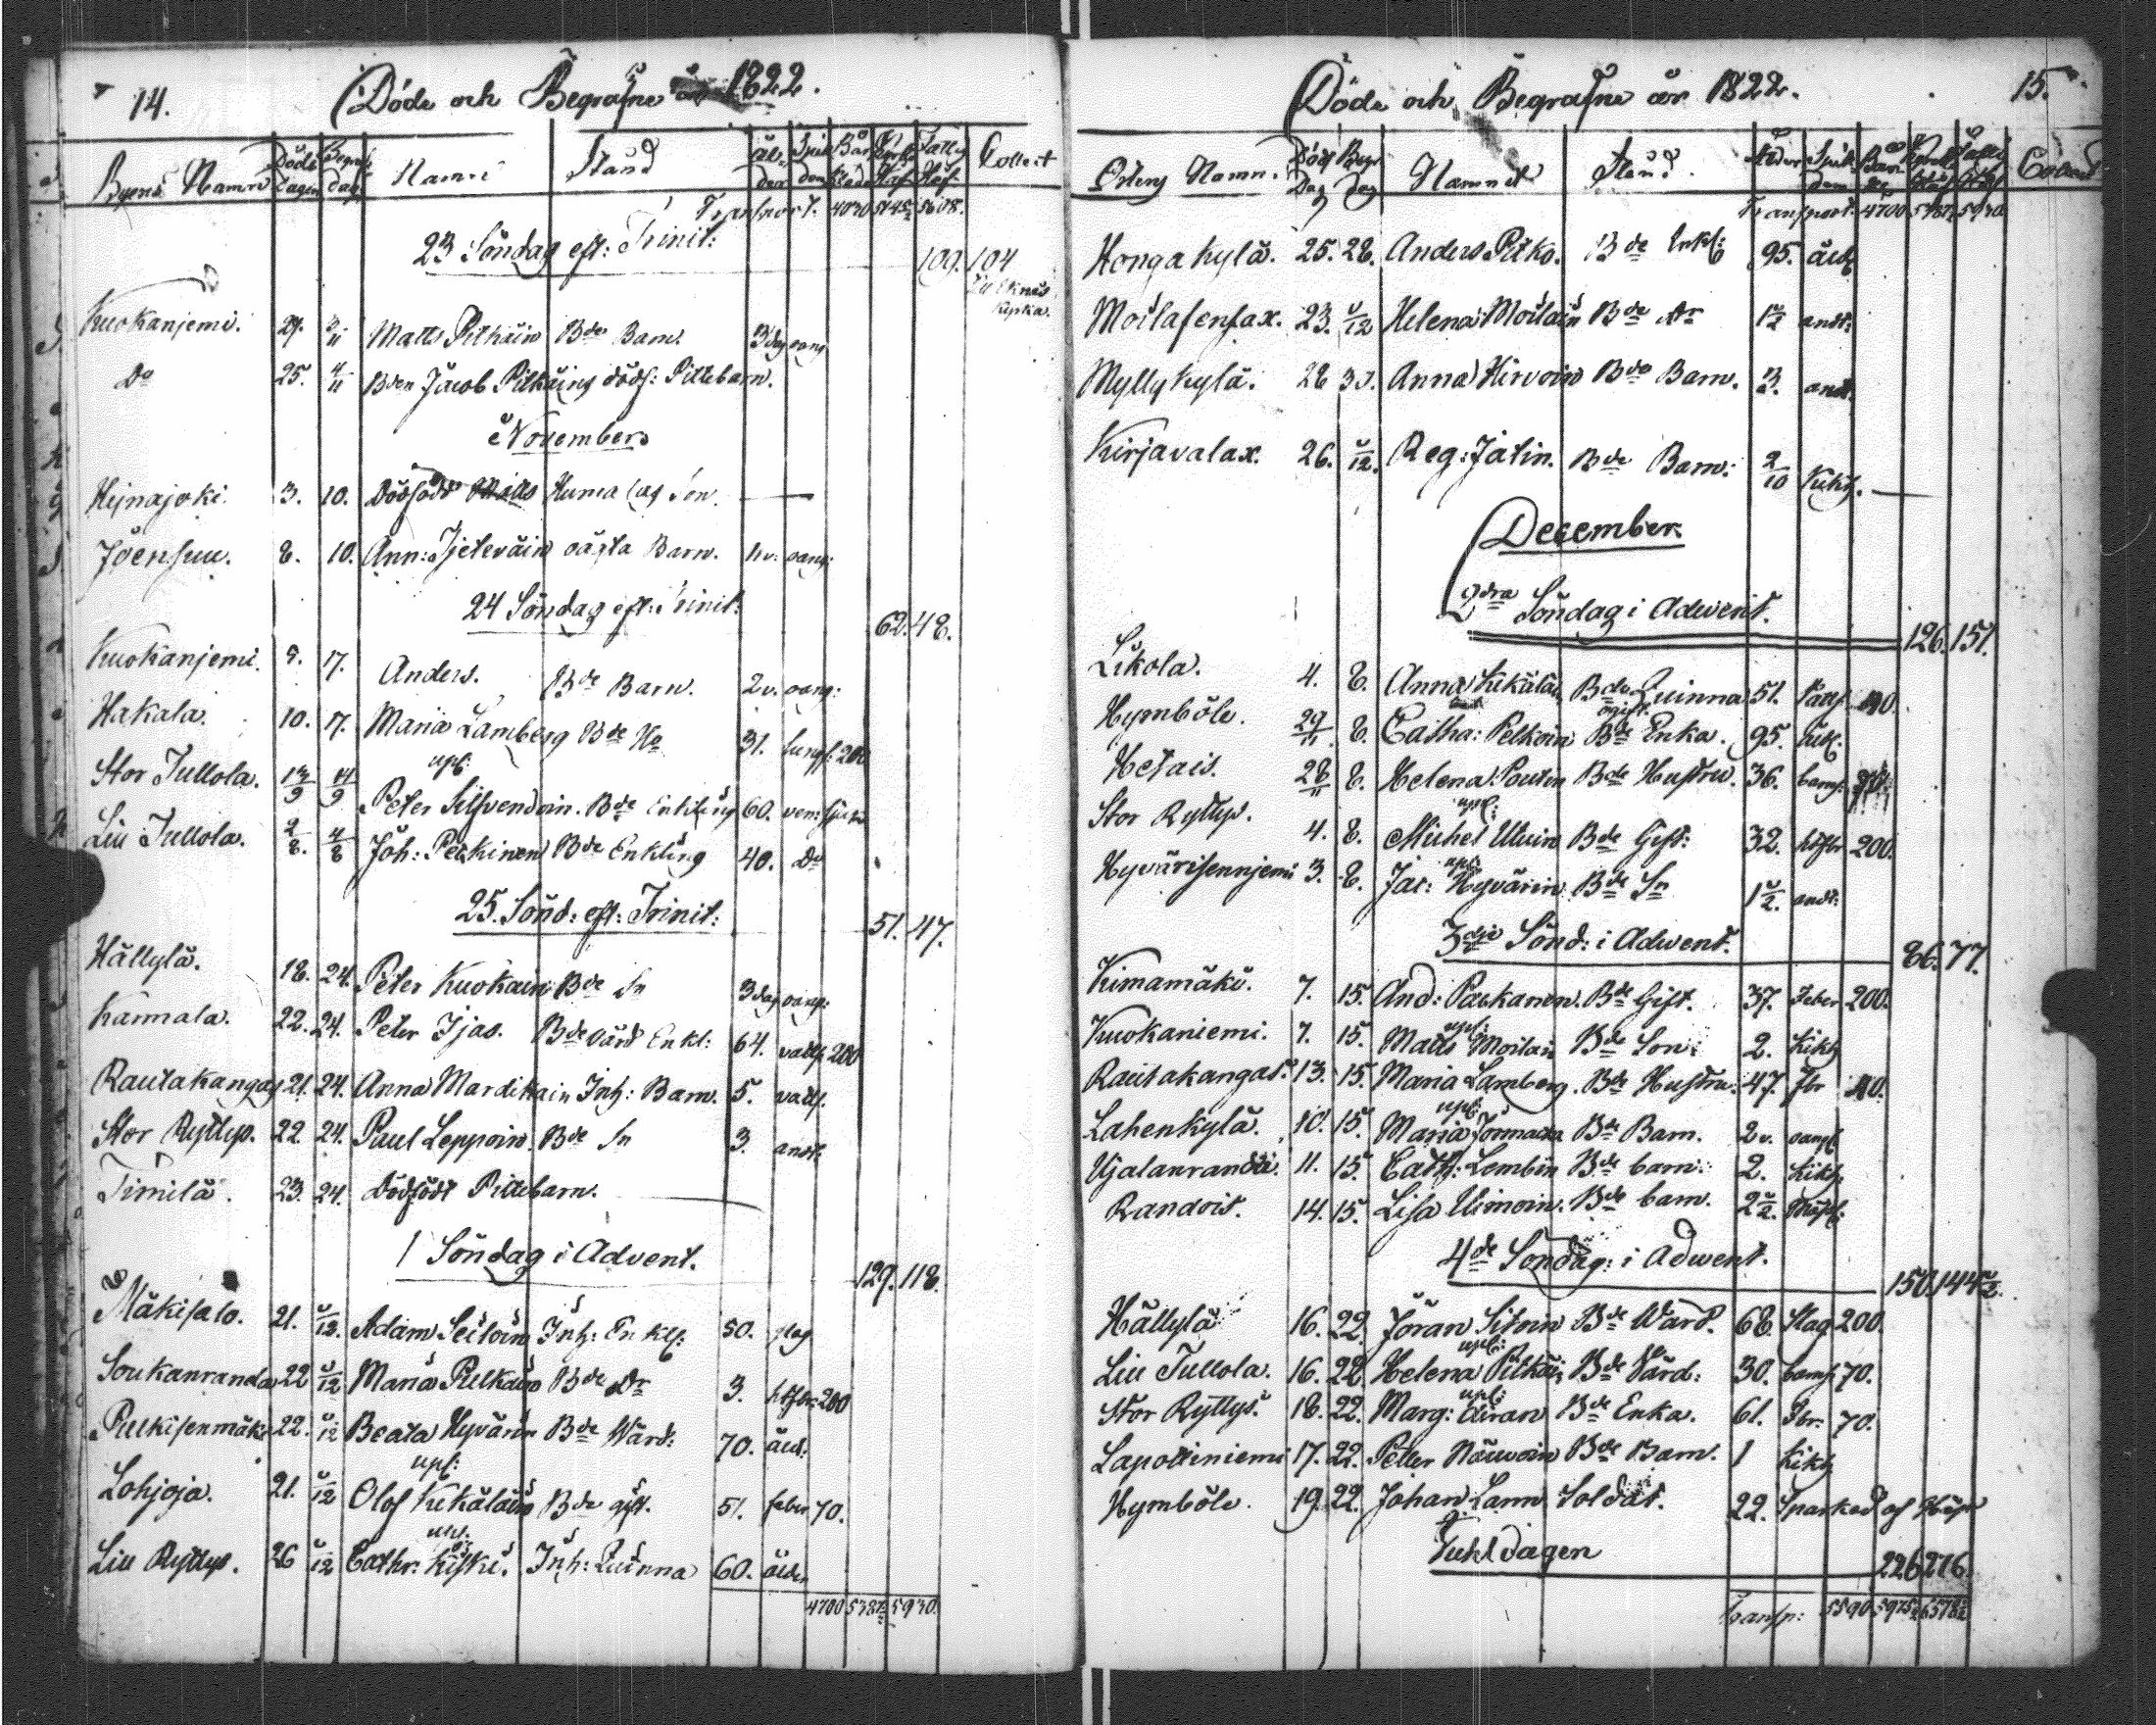 14. Döde och Begrafne år 1822.
Byens Namn Döde dagen Begraf: dag Namn Stånd Ål- der Sjuk dom Bår Kläde Kyrko Håf Tafle Håf Collect
Transport. 4030 5145½ 5608.
23 Söndag eft: Trinit: 109. 104
Kuokanjemi. 29. 3/11 Matts Pitkäin Bde Barn. 3 dag oang
Do 25. 4/11 Bden Jacob Pitkäins dödf: Piltebarn.
November
Heinajoki. 3. 10. Dödfödd Matts Humalas Son.
Joensuu. 8. 10. Ann: Ijeteväin oägta Barn. 11 v: oang:
24 Söndag eft: Trinit: 62. 48.
Kuokanjemi. 9. 17. Anders. Bde Barn. 2 v. oang:
Hakala. 10. 17. Maria Lamberg Bde Ha 31. lungf: 200
Stor Jullola. 13/9 14/9 Peter Silfvendoin. Bde Enkling 60. ven: sjuka
upl:
Lill Jullola. 2/8. 4/8 Joh: Peskinen Bde Enkling 40. Do
25. Sönd: eft: Trinit: 51. 47.
Hällylä. 18. 24. Peter Kuokain Bde Sn 3 dag oang:
Kannala. 22. 24. Peter Ijas. Bde värd Enkl: 64. vattf 200
Rautakangas 21. 24. Anna Mardikain Inh: Barn. 5. vattf.
Stor Ryttys. 22. 24. Paul Leppoin. Bde Sn 3. andt.
Timila. 23. 24. dödfödt Piltebarn.
1 Söndag i Advent. 129. 118.
Mäkisalo. 21. 1/12. Adam Seiloin Inh: Enkl: 50. slag
Soukanranda 22 1/12 Maria Pulkäin Bde Dr 3. hetsfbr: 200
Pulkisenmäki 22. 1/12 Beata Hyvärin Bde Wärd: 70. åld:
upl:
Lohjoja. 21. 1/12 Olof Kekäläin Bde gift. 51. feber 70.
upl.
Lill Ryttys. 26 1/12 Cathr: Kiiski. Inh: Quinna 60. ålder
4700 5387½ 5930.
Döde och Begrafne år 1822. 15.
Namn. Död Dag Begr dag Namnet Stånd. Ålder Sjuk dom Bår Kl: Kyrko Håf Tafle Håf Collect
Transport. 4700 5387½ 5930.
Hongakylä. 25. 28. Anders Pitko. Bde Enkl: 95. åld
Moilasensax. 23. 1/12 Helena Moiläin Bde Dr 1½ andt:
Myllykylä. 28 30. Anna Hirvoin Bde Barn. 3. andt.
Kirjavalax. 26. 1/12. Reg: Jatin. Bde Barn: 2/10 Kikh.
December
2dra Söndag i Adwent. 126. 151.
Likola. 4. 8. Anna Kekäläin Bde Quinna 51. vattf 40.
ogift.
Hymböle. 29/11 8. Catha: Pelkoin Bde Enka. 95. åld:
Hetais. 28/11 8. Helena Poutin Bde Hustru. 36. barns:
upl:
Stor Ryttys. 4. 8. Michel Uluin Bde Gift: 32. hetsfbr 200.
upl:
Hyvärisennjemi 3. 8. Jac: Hyvärin Bde Sn 1½. andt:
3dje Sönd: i Adwent. 86. 77.
Kimamäki. 7. 15. And: Paskanen. Bde Gift. 37. Feber 200.
upl:
Kuokaniemi. 7. 15. Matts Moilain Bde Son. 2. Kikh
Rautakangas. 13. 15. Maria Lamberg. Bde Hustru. 47. fbr 40.
upl:
Lahenkylä. 10. 15. Maria Jormacka Bde Barn. 2 v. oangf
Ujalanranda. 11. 15. Cath: Lembin Bde barn. 2. Kikh.
Randois. 14. 15. Lisa Uimoin. Bde barn. 2½. Mässl:
4de Söndag: i Adwent. 150. 144½.
Hällylä 16. 22. Jöran Sitoin Bde Ward. 68. Slag 200.
upl:
Lill Jullola. 16. 22. Helena Pitkäi: Bde Värd: 30. barns 70.
upl:
Stor Ryttys. 18. 22. Marg: Airan Bde Enka. 61. Fbr. 70.
Lapottiniemi 17. 22. Petter Nouwoin Bde Barn. 1 Kikh
Hymböle. 19. 22. Johan Lann Soldat. 22. Sparkad af Häst
Juhldagen 226 276.
Transp: 5590 5975½ 6578½